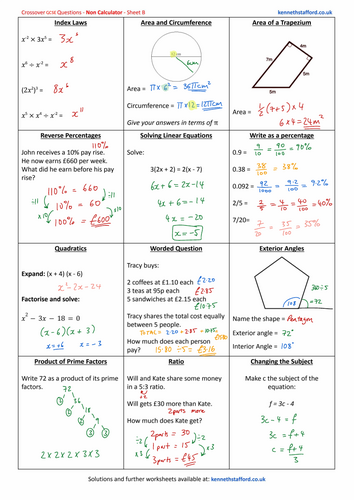 Crossover GCSE Questions - Non Calculator - Sheet B
kennethstafford.co.uk
Index Laws
x⁻² × 3x³ = 3x⁶
x⁶ ÷ x⁻² = x⁸
(2x²)³ = 8x⁶
x⁵ × x⁴ ÷ x⁻² = x¹¹
Area and Circumference
6cm
Area = π × 6² = 36πcm²
Circumference = π × 12 = 12πcm
Give your answers in terms of π
Area of a Trapezium
4m
7m
5m
5m
Area = ½(7+5) × 4
6 × 4 = 24m²
Reverse Percentages
John receives a 10% pay rise.
He now earns £660 per week.
What did he earn before his pay
rise?
110%
110% = 660
÷11
÷11
10% = 60
×10
×10
100% = £600
Solving Linear Equations
Solve:
3(2x + 2) = 2(x - 7)
6x + 6 = 2x - 14
4x + 6 = -14
4x = -20
x = -5
Write as a percentage
0.9 = 9/10 = 90/100 = 90%
0.38 = 38/100 = 38%
0.092 = 92/1000 = 9.2/100 = 9.2%
2/5 = 2/5 = 4/10 = 40/100 = 40%
7/20=
7/20 = 35/100 = 35%
Quadratics
Expand: (x + 4) (x - 6)
x² - 2x - 24
Factorise and solve:
x² − 3x − 18 = 0
(x-6)(x+3)
x = +6 x = -3
Worded Question
Tracy buys:
2 coffees at £1.10 each £2.20
3 teas at 95p each £2.85
5 sandwiches at £2.15 each
£10.75
Tracy shares the total cost equally
between 5 people.
Total = 2.20 + 2.85 + 10.75
How much does each person
pay? 15.80 ÷ 5 = £3.16
Exterior Angles
360÷5
108
= 72
Name the shape = Pentagon
Exterior angle = 72°
Interior Angle = 108°
Product of Prime Factors
Write 72 as a product of its prime
factors.
72
2
36
2
18
2
9
3
3
2 × 2 × 2 × 3 × 3
Ratio
Will and Kate share some money
in a 5:3 ratio.
Will gets £30 more than Kate.
2 parts more
How much does Kate get?
2 parts = 30
÷2
÷2
1 part = 15
×3
×3
3 parts = £45
Changing the Subject
Make c the subject of the
equation:
f = 3c - 4
3c - 4 = f
3c = f + 4
c = f + 4
3
Solutions and further worksheets available at: kennethstafford.co.uk